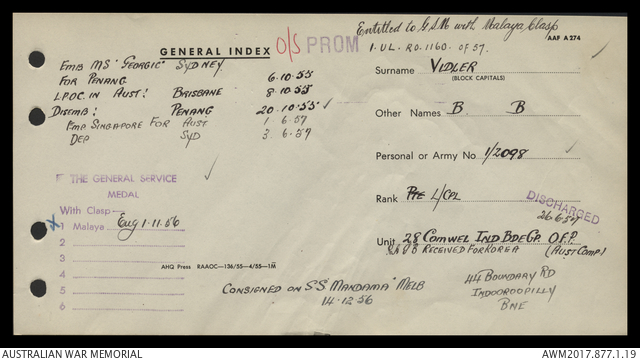 Entitled to G.S.M with Malaya Clasp
AAF A 274
1.UL. R.O.1160. OF 57.
GENERAL INDEX O/S PROM
EMB MS "GEORGIC" SYDNEY
FOR PENANG 6.10.55
L.P.O.C. IN AUST: BRISBANE 8.10.55
DISEMB: PENANG 20.10.55
EMB SINGAPORE FOR AUST 1.6.57
DEP SYD 3.6.57
Surname VIDLER
(BLOCK CAPITALS)
Other Names B. B
Personal or Army No. 1/2098
Rank Pte L/CPL
DISCHARGED
26.6.57
Unit 28 COMWEL IND BDE GP. O.F.P
(AUST COMP)
RECEIVED FOR KOREA
44 BOUNDARY RD
INDOOROOPILLY
BNE
THE GENERAL SERVICE
MEDAL
With Clasp
X 1 Malaya Eng 1.11.56
2
3
4
5
6
AHQ Press RAAOC—136/55—4/55—1M
CONSIGNED ON S.S. "MANDAMA" MELB
14.12.56
AUSTRALIAN WAR MEMORIAL
AWM2017.877.1.19